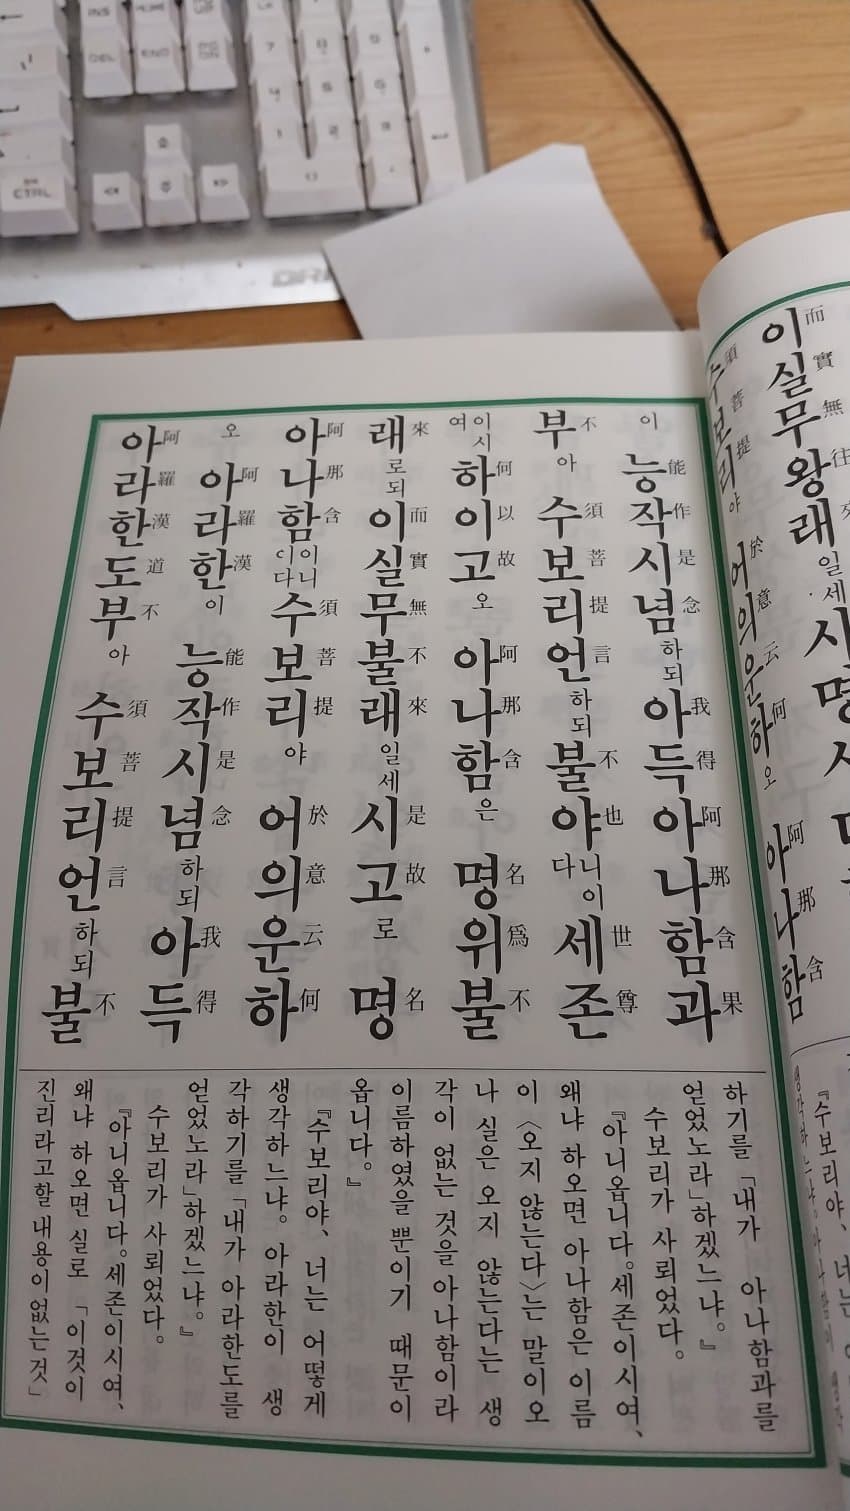 INS HOME
DEL END
7 8 9
4 5 6
1 2 3
CTRL
이실무왕래일세
而實無往來
수보리야 어의운하오 아나함
須菩提 於意云何 阿那含
『수보리야、 너는
이 능작시념하되 아득아나함과
能作是念 我得阿那含果
부아 수보리언하되 불야니이다 세존
不 須菩提言 不也 世尊
이시여 하이고오 아나함은 명위불
何以故 阿那含 名爲不
래로되 이실무불래일세 시고로 명
來 而實無不來 是故 名
아나함이니이다 수보리야 어의운하
阿那含 須菩提 於意云何
오 아라한이 능작시념하되 아득
阿羅漢 能作是念 我得
아라한도부아 수보리언하되 불
阿羅漢道不 須菩提言 不
하기를 「내가 아나함과를
얻었노라」하겠느냐。』
수보리가 사뢰었다。
『아니옵니다。세존이시여、
왜냐 하오면 아나함은 이름
이 〈오지 않는다〉는 말이오
나 실은 오지 않는다는 생
각이 없는 것을 아나함이라
이름하였을 뿐이기 때문이
옵니다。』
『수보리야、 너는 어떻게
생각하느냐。 아라한이 생
각하기를 「내가 아라한도를
얻었노라」하겠느냐。』
수보리가 사뢰었다。
『아니옵니다。세존이시여、
왜냐 하오면 실로 「이것이
진리라고할 내용이 없는 것」